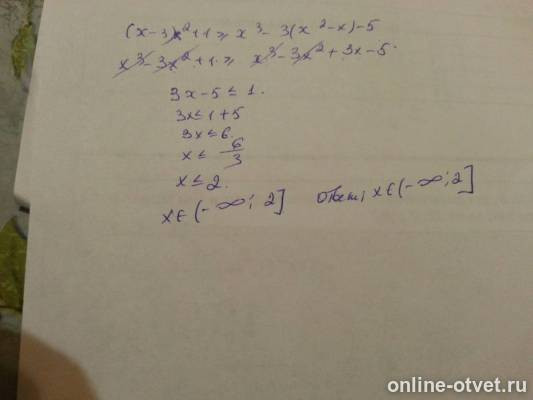 (x-3)x²+1 ≥ x³-3(x²-x)-5
x³-3x²+1 ≥ x³-3x²+3x-5
3x-5 ≤ 1.
3x ≤ 1+5
3x ≤ 6.
x ≤ 6/3
x ≤ 2.
x∈(-∞; 2] Ответ: x∈(-∞; 2]
online-otvet.ru